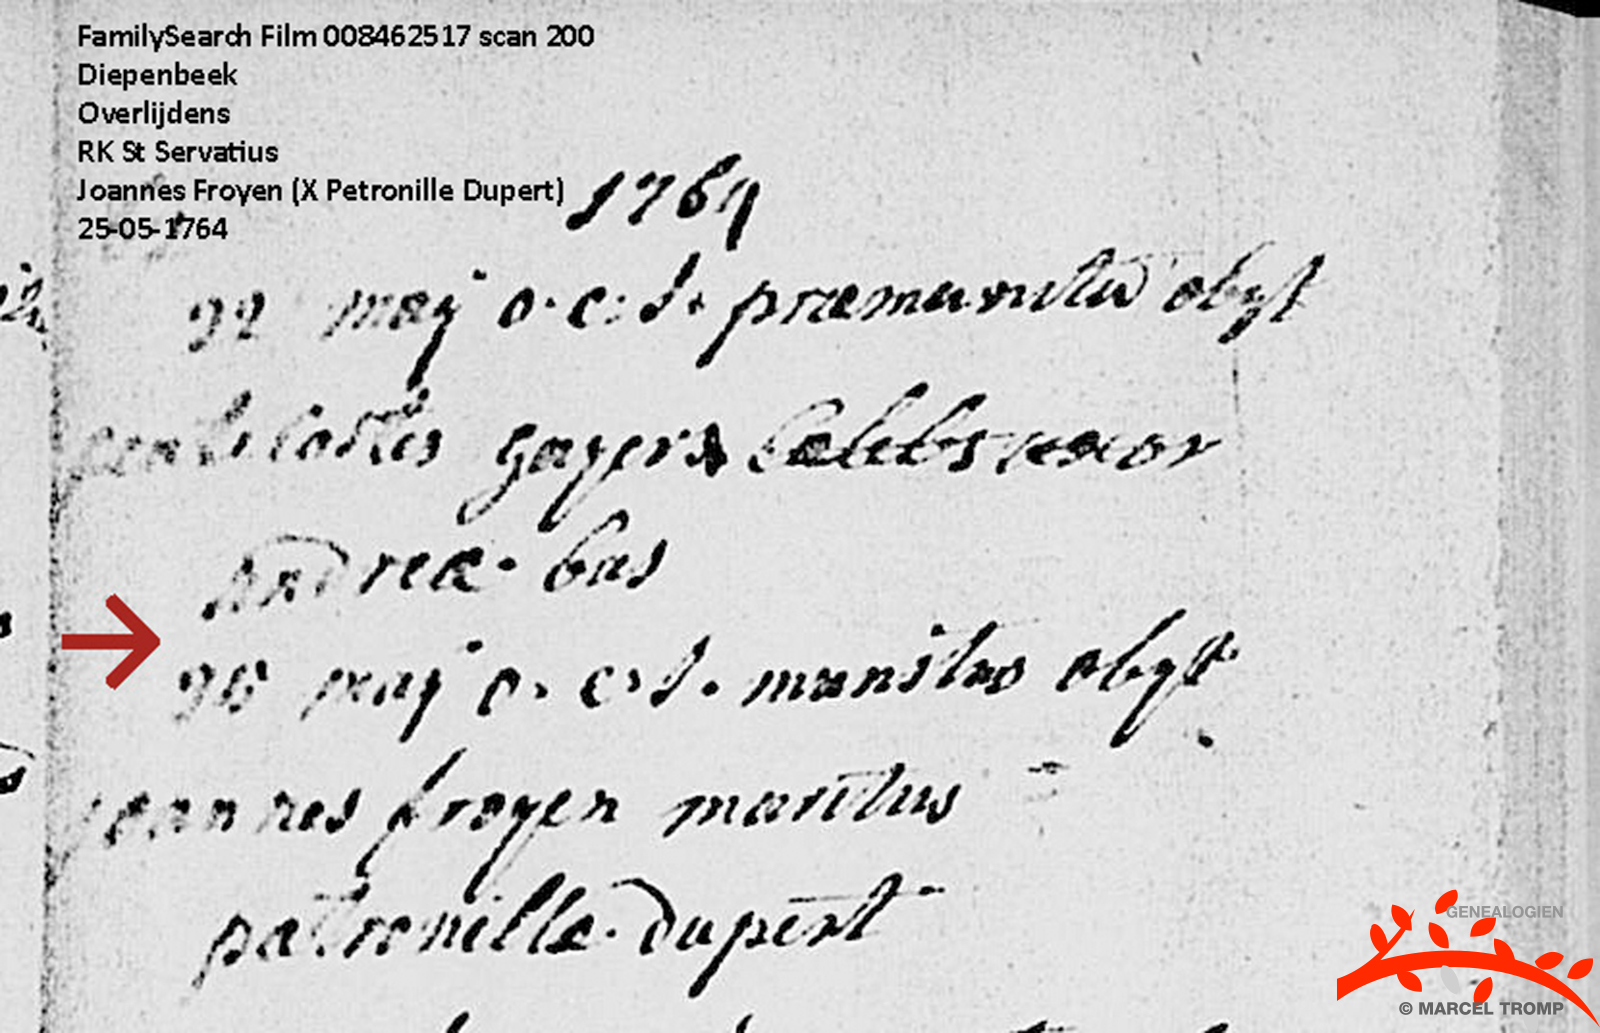 FamilySearch Film 008462517 scan 200
Diepenbeek
Overlijdens
RK St Servatius
Joannes Froyen (X Petronille Dupert)
25-05-1764
1764
22 maij o. c. s. præmunitus obyt
gayers Cælebs uxor
Andreæ bas
25 maij o. c. s. munitus obyt
joannes froyen maritus
petronillæ dupert
GENEALOGIEN
© MARCEL TROMP